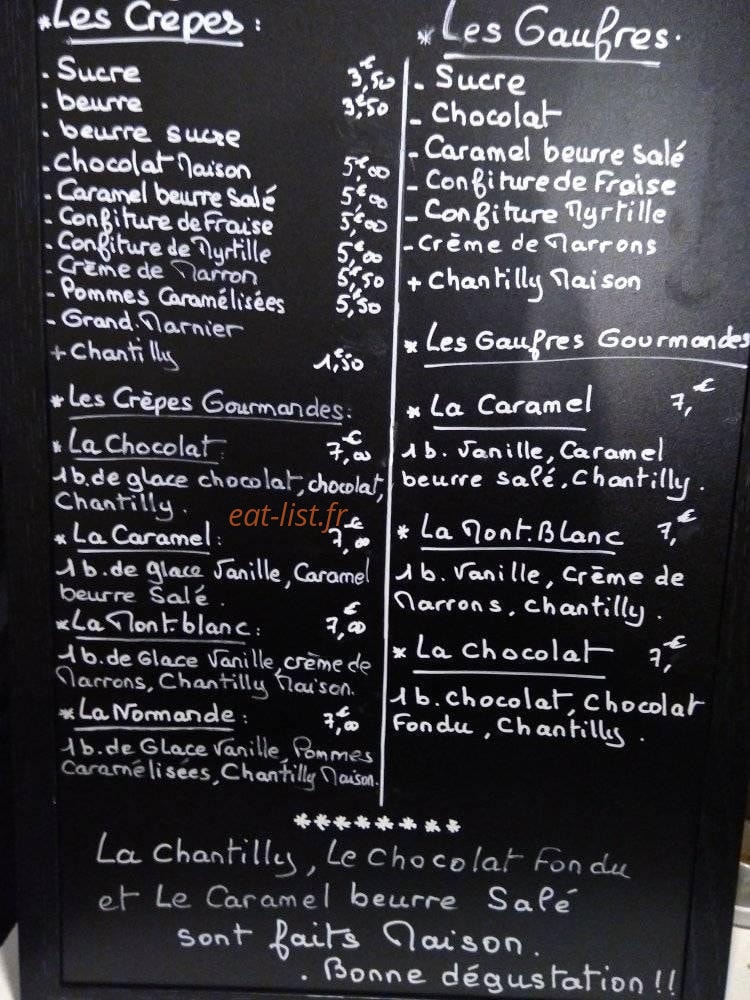 *Les Crêpes :
- Sucre 3,€50
- beurre 3,€50
- beurre sucre
- Chocolat Maison 5,€00
- Caramel beurre Salé 5,€00
- Confiture de Fraise 5,€00
- Confiture de Myrtille 5,€00
- Crème de Marron 5,€50
- Pommes Caramélisées 5,€50
- Grand.Marnier
+ Chantilly 1,€50
* Les Crêpes Gourmandes:
* La Chocolat: 7,€00
1b.de glace chocolat, chocolat,
Chantilly.
* La Caramel: 7,€00
1b.de glace Vanille, Caramel
beurre Salé.
*La Mont.blanc: 7,€00
1b.de Glace Vanille, crème de
Marrons, Chantilly Maison.
*La Normande: 7,€00
1b.de Glace Vanille, Pommes
Caramélisées, Chantilly Maison.
* Les Gaufres.
- Sucre
- Chocolat
- Caramel beurre Salé
- Confiture de Fraise
- Confiture Myrtille
- Crème de Marrons
+ Chantilly Maison
* Les Gaufres Gourmandes
* La Caramel 7,€
1b. Vanille, Caramel
beurre salé, Chantilly.
* La Mont.Blanc 7,€
1b. Vanille, Crème de
Marrons, Chantilly.
* La Chocolat 7,€
1b. Chocolat, Chocolat
Fondu, Chantilly.
********
La Chantilly, Le Chocolat Fondu
et Le Caramel beurre Salé
sont faits Maison.
. Bonne dégustation !!
eat-list.fr